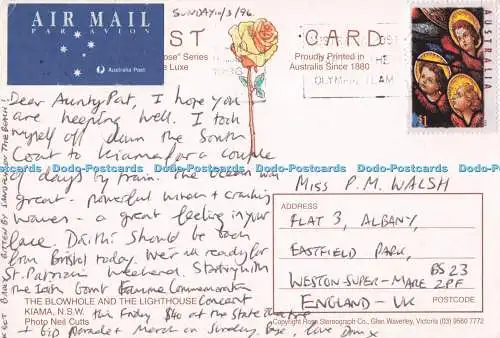 AIR MAIL
PAR AVION
Australia Post
SUNDAY 10/3/96.
ST CARD
ose" Series
e Luxe
Proudly Printed in
Australia Since 1880
OLYMPIC TEAM
AUSTRALIA
$1
Dear Aunty Pat, I hope you
are keeping well. I took
myself off down the South
Coast to Kiama for a couple
of days by train. The ocean was
great - powerful wind & crashing
waves - a great feeling in your
face. Daithi should be back
from Bristol today. We're all ready for
St. Patrick's weekend. Starting with
the Irish Great Famine Commemoration
Concert
this Friday $40 at the State Theatre
& big Parade & March on Sunday. Bye, love
BITTEN BY SANDFLIES ON THE BEACH!
Miss P. M. WALSH
ADDRESS
FLAT 3, ALBANY,
EASTFIELD PARK,
WESTON-SUPER-MARE
BS23
2PF
ENGLAND - UK
POSTCODE
THE BLOWHOLE AND THE LIGHTHOUSE
KIAMA, N.S.W.
Photo Neil Cutts
Copyright Rose Stereograph Co., Glen Waverley, Victoria (03) 9560 7772
Dodo-Postcards Dodo-Postcards Dodo-Postcards Dodo-Postcards Dodo-Postcards